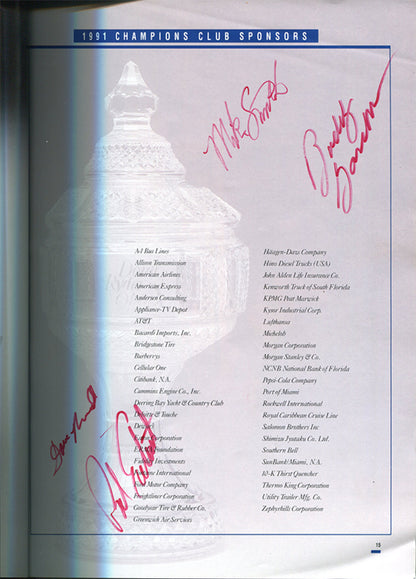 1991 CHAMPIONS CLUB SPONSORS
Mike Smith
Buddy
A-1 Bus Lines
Allison Transmission
American Airlines
American Express
Andersen Consulting
Appliance-TV Depot
AT&T
Bacardi Imports, Inc.
Bridgestone Tire
Burberrys
Cellular One
Citibank, N.A.
Cummins Engine Co., Inc.
Deering Bay Yacht & Country Club
Deloitte & Touche
Corporation
Foundation
Investments
International
Motor Company
Freightliner Corporation
Goodyear Tire & Rubber Co.
Greenwich Air Services
Häagen-Dazs Company
Hino Diesel Trucks (USA)
John Alden Life Insurance Co.
Kenworth Truck of South Florida
KPMG Peat Marwick
Kysor Industrial Corp.
Lufthansa
Michelob
Morgan Corporation
Morgan Stanley & Co.
NCNB National Bank of Florida
Pepsi-Cola Company
Port of Miami
Rockwell International
Royal Caribbean Cruise Line
Salomon Brothers Inc
Shimizu Jyutaku Co. Ltd.
Southern Bell
SunBank/Miami, N.A.
10-K Thirst Quencher
Thermo King Corporation
Utility Trailer Mfg. Co.
Zephyrhills Corporation
15